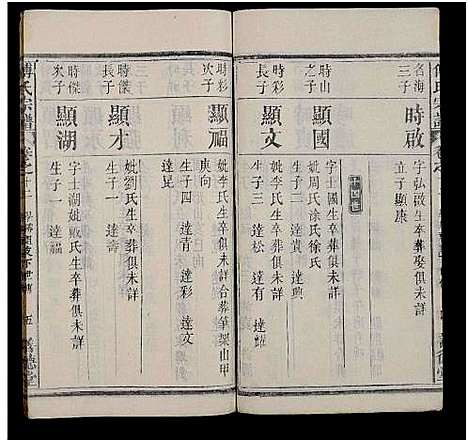 名海
三子
時啟
字弘啟生卒葬娶俱未詳
立子顯康
時山
之子
顯國
字士國生卒葬俱未詳
妣周氏涂氏徐氏
生子二 達貴 達興
時彩
長子
顯文
妣李氏生卒葬俱未詳
生子三 達松 達有 達耀
時彩
次子
顯福
妣李氏生卒俱未詳合葬筆架山甲
庚向
生子四 達青 達彩 達文
達昆
時傑
長子
顯才
妣劉氏生卒葬俱未詳
生子一 達壽
時傑
次子
顯湖
字士湖妣敖氏生卒葬俱未詳
生子一 達福
傅氏宗譜
五